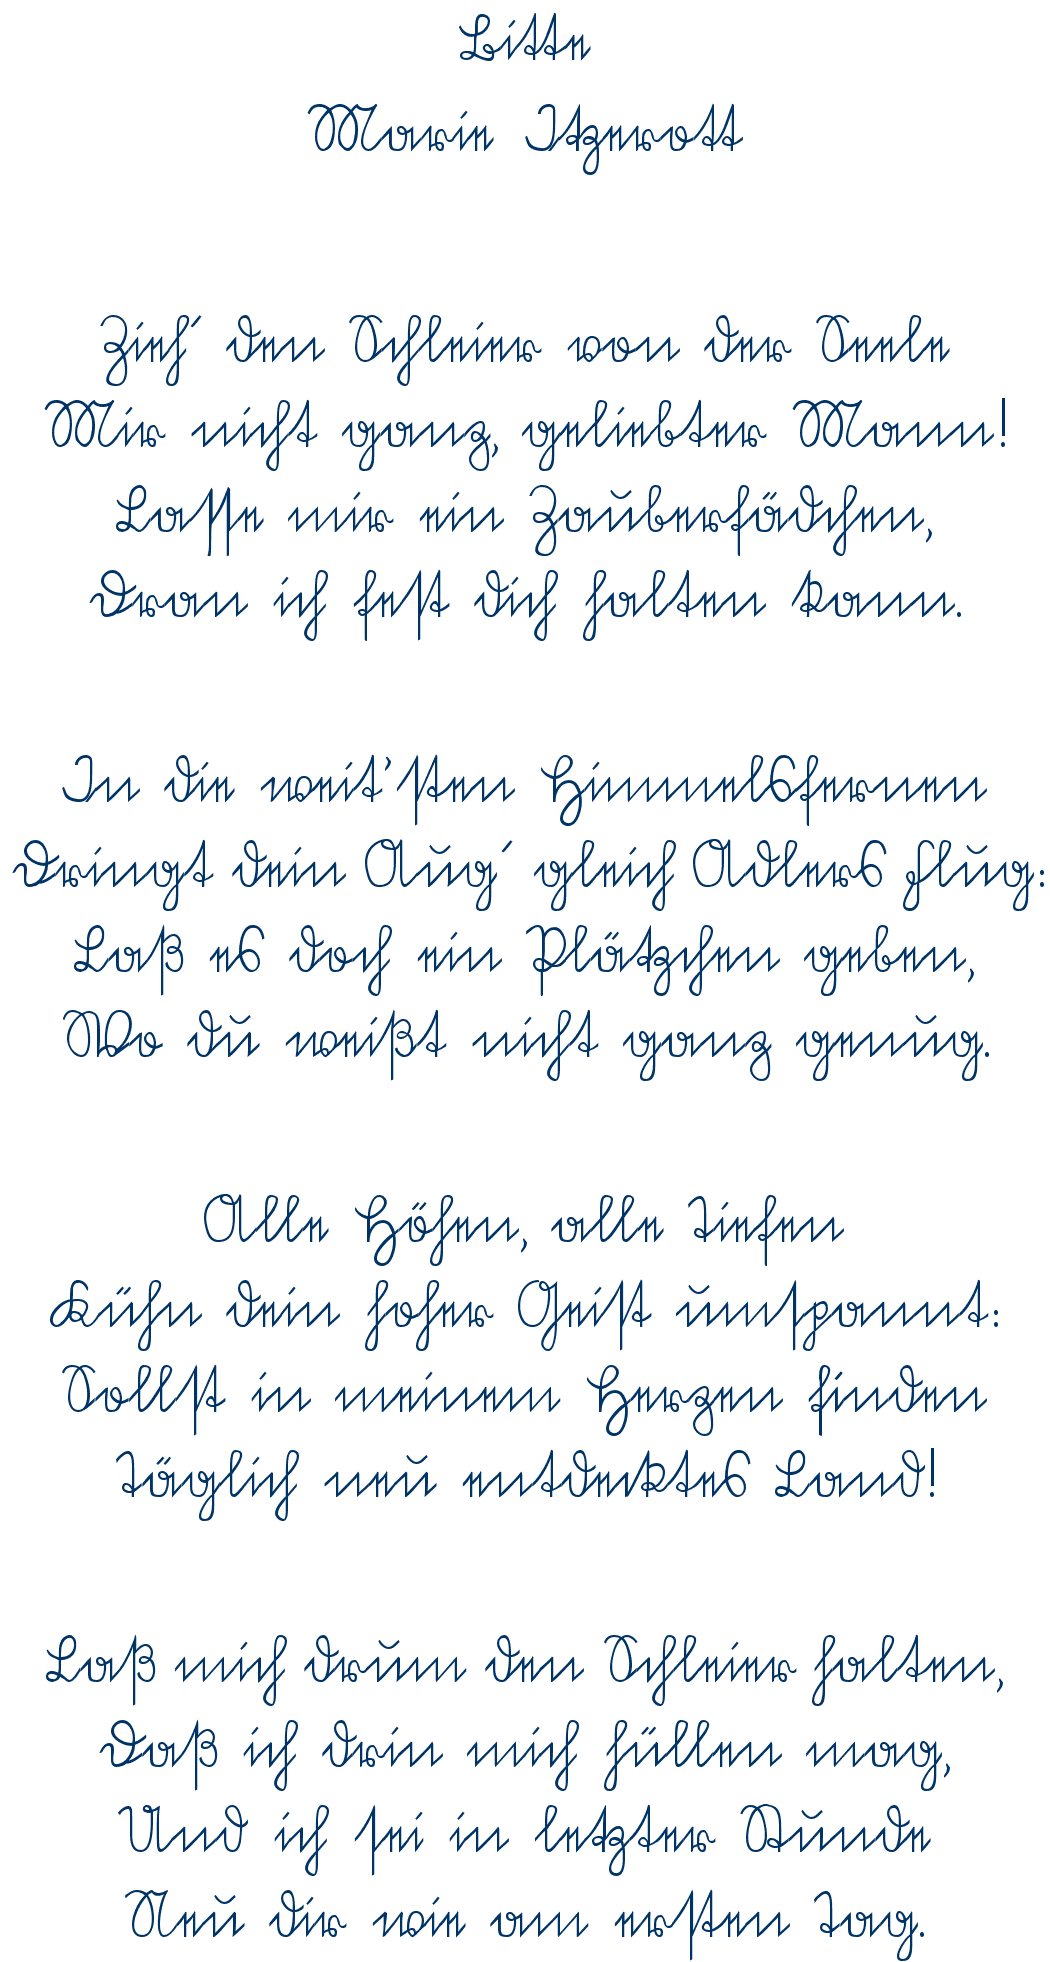 Bitte
Marie Itzerott
Zieh´ den Schleier von der Seele
Mir nicht ganz, geliebter Mann!
Lasse mir ein Zauberfädchen,
Dran ich fest dich halten kann.
In die weit'sten Himmelsfernen
Dringt dein Aug´ gleich Adlers Flug:
Laß es doch ein Plätzchen geben,
Wo du weißt nicht ganz genug.
Alle Höhen, alle Tiefen
Kühn dein hoher Geist umspannt:
Sollst in meinem Herzen finden
Täglich neu entdecktes Land!
Laß mich drum den Schleier halten,
Daß ich drin mich hüllen mag,
Und ich sei in letzter Stunde
Neu dir wie am ersten Tag.